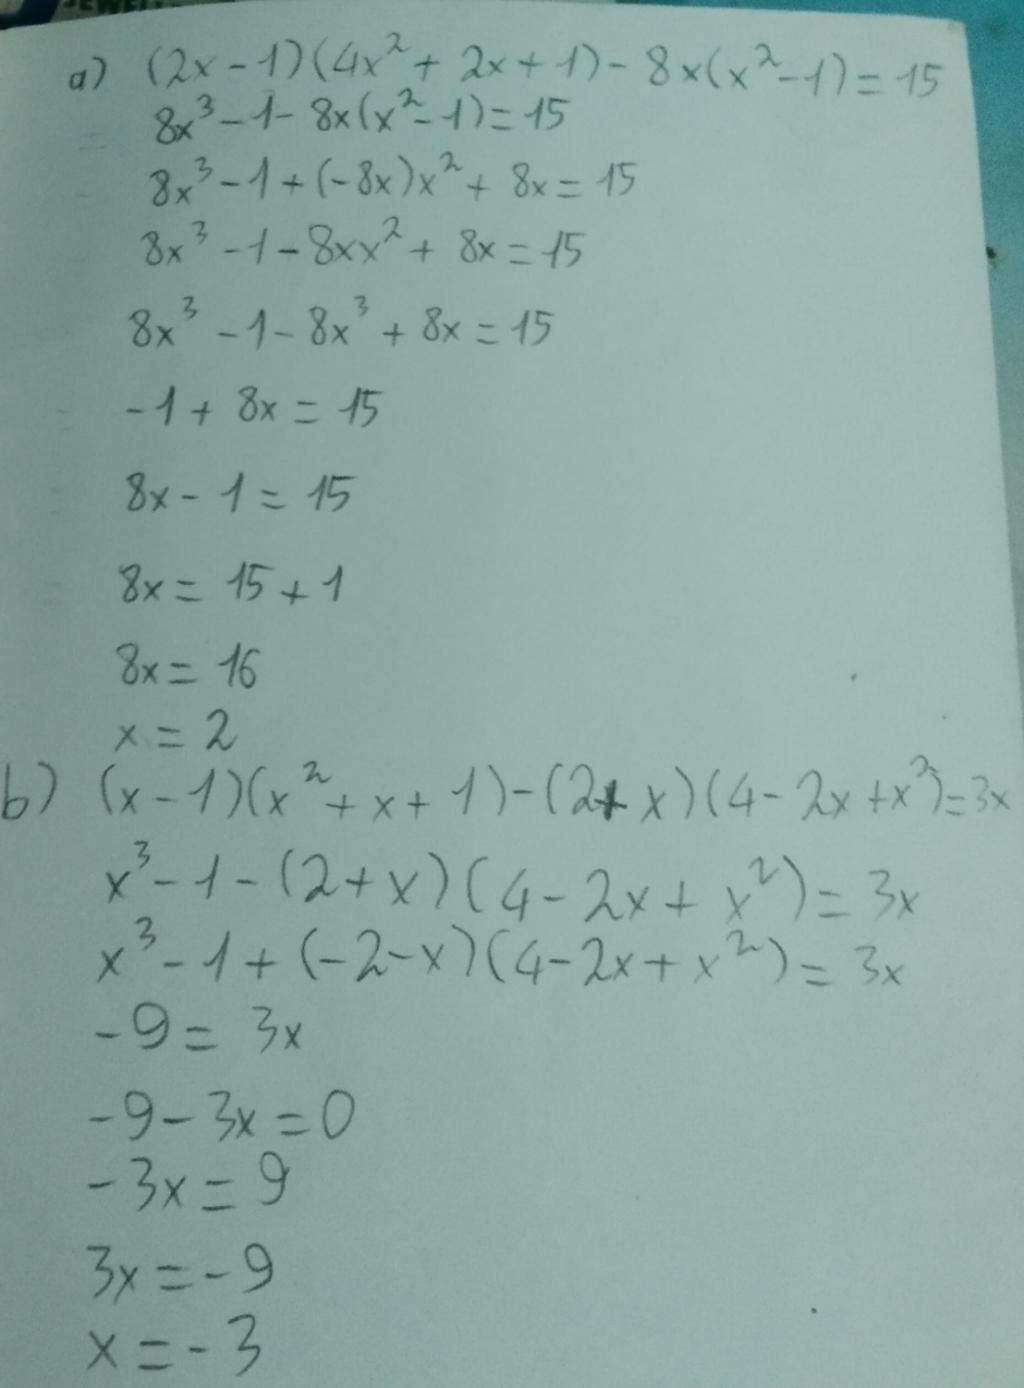 a) (2x - 1)(4x² + 2x + 1) - 8x(x² - 1) = 15
8x³ - 1 - 8x(x² - 1) = 15
8x³ - 1 + (-8x)x² + 8x = 15
8x³ - 1 - 8xx² + 8x = 15
8x³ - 1 - 8x³ + 8x = 15
-1 + 8x = 15
8x - 1 = 15
8x = 15 + 1
8x = 16
x = 2
b) (x - 1)(x² + x + 1) - (2 + x)(4 - 2x + x²) = 3x
x³ - 1 - (2 + x)(4 - 2x + x²) = 3x
x³ - 1 + (-2 - x)(4 - 2x + x²) = 3x
-9 = 3x
-9 - 3x = 0
-3x = 9
3x = -9
x = -3